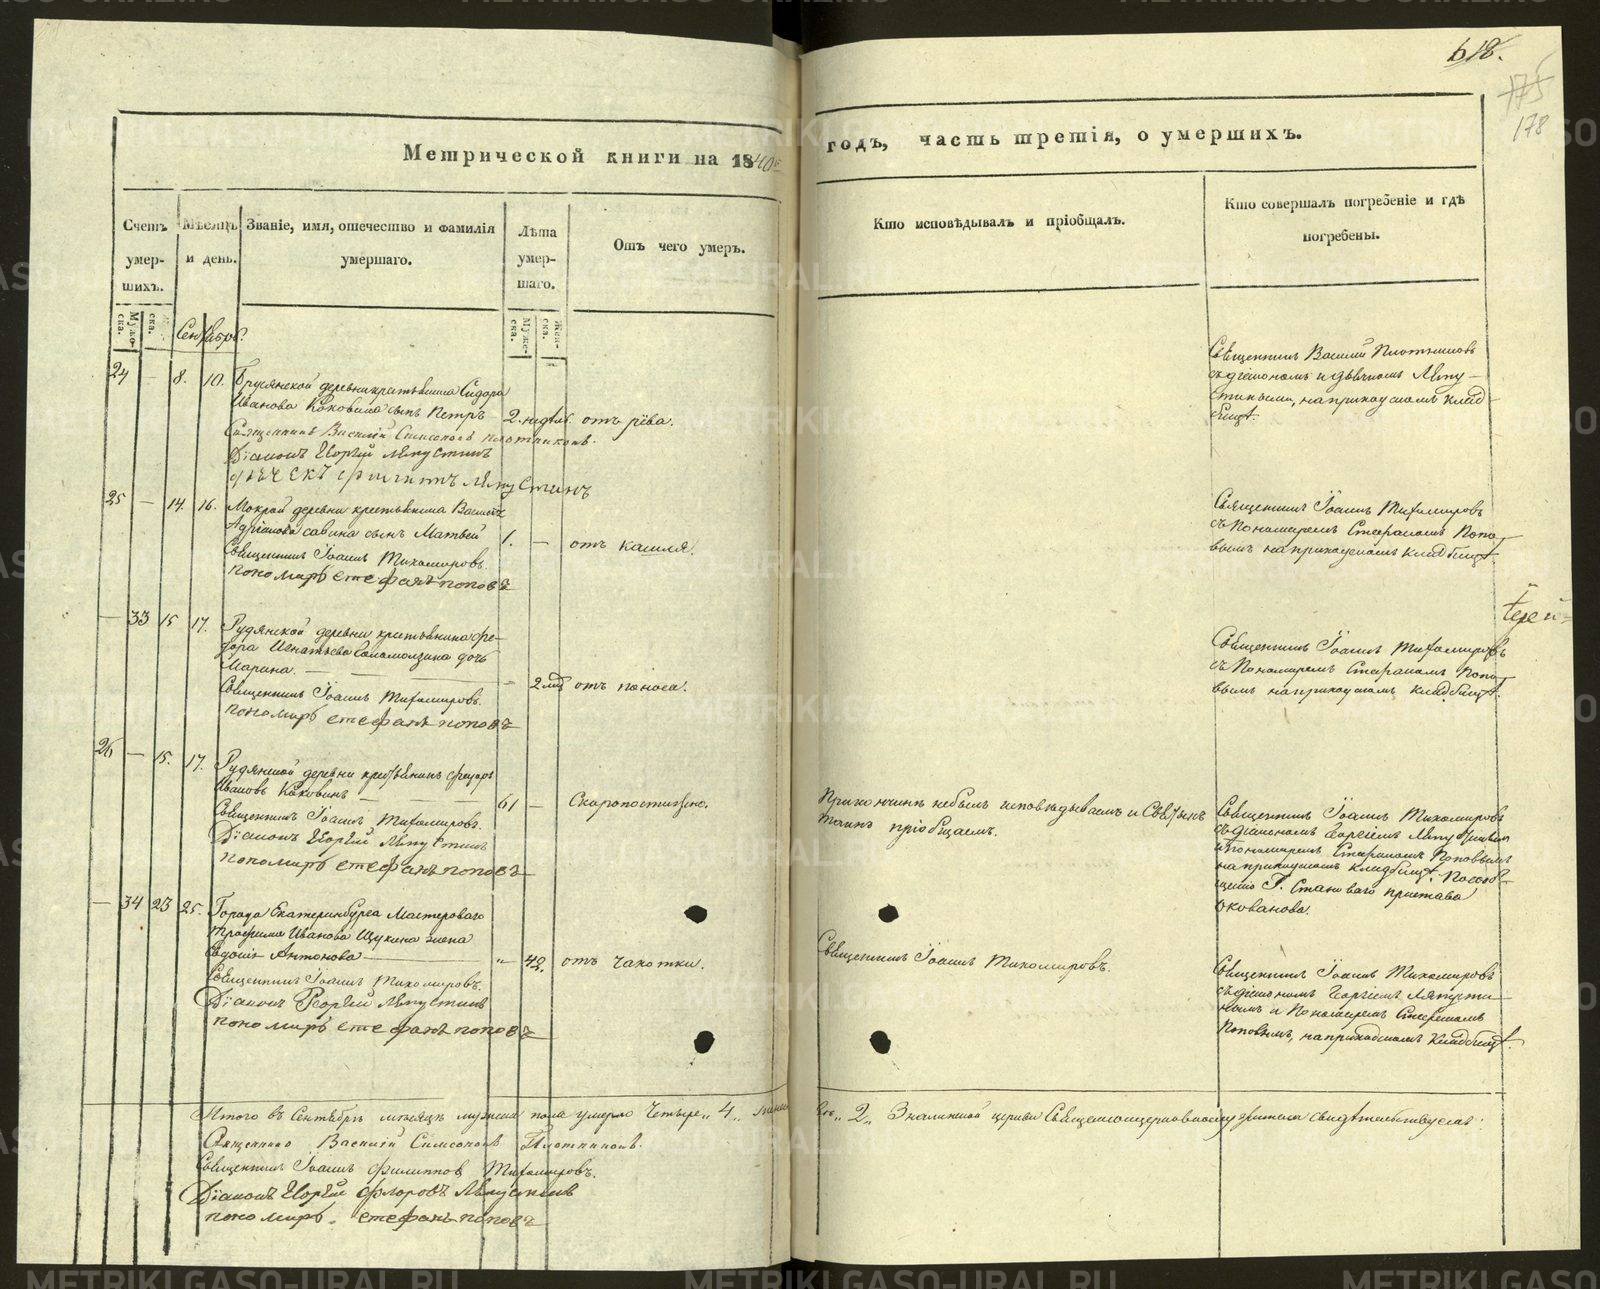 618.
175
178
Метрической книги на 1840
годъ, часть третія, о умершихъ.
Счетъ умер-
шихъ.
Мѣсяцъ
и день.
Званіе, имя, отечество и фамилія
умершаго.
Лѣта
умер-
шаго.
Отъ чего умеръ.
Кто исповѣдывалъ и пріобщалъ.
Кто совершалъ погребеніе и гдѣ
погребены.
Муже-
ска.
Жен-
ска.
Сентябрь
24 — 8. 10.
Брусянской деревни крестьянина Сидора
Иванова Каковина сынъ Петръ
2. недѣл. отъ рева.
Священникъ Василій Симеоновъ Плотниковъ.
Діаконъ Георгій Ляпустинъ
Священникъ Василій Плотниковъ
съ діакономъ и дьячкомъ Ляпу-
стиными, на приходскомъ клад-
бищѣ.
25 — 14. 16.
Мокрой деревни крестьянина Василья
Адріанова Савина сынъ Матвей
1. — отъ кашля.
Священникъ Іоаннъ Тихомировъ.
пономарь стефанъ поповъ
Священникъ Іоаннъ Тихомировъ
съ Пономаремъ Стефаномъ Попо-
вымъ на приходскомъ кладбищѣ.
— 33 15 17.
Рудянской деревни крестьянина Фе-
дора Игнатьева Саламолзина дочь
Марина. —
2 нед отъ поноса.
Священникъ Іоаннъ Тихомировъ.
пономарь стефанъ поповъ
Священникъ Іоаннъ Тихомировъ
съ Пономаремъ Стефаномъ Попо-
вымъ на приходскомъ кладбищѣ.
26 — 15. 17.
Рудянской деревни крестьянинъ Федоръ
Ивановъ Каковинъ —
61 — Скоропостижно.
Священникъ Іоаннъ Тихомировъ.
Діаконъ Георгій Ляпустинъ
пономарь стефанъ поповъ
При кончинѣ не былъ исповѣдываемъ и Святыхъ
Таинъ пріобщаемъ.
Священникъ Іоаннъ Тихомировъ
съ діакономъ Георгіемъ Ляпустинымъ
и Пономаремъ Стефаномъ Поповымъ
на приходскомъ кладбищѣ. По сооб-
щенію Г. Становаго пристава
— 34 23 25.
Города Екатеринбурга Мастероваго
Трофима Иванова Щукина жена
Евдокія Антонова —
„ 42. отъ чахотки.
Священникъ Іоаннъ Тихомировъ.
Діаконъ Георгій Ляпустинъ
пономарь стефанъ поповъ
Священникъ Іоаннъ Тихомировъ.
Священникъ Іоаннъ Тихомировъ
съ діакономъ Георгіемъ Ляпусти-
нымъ и Пономаремъ Стефаномъ
Поповымъ, на приходскомъ кладбищѣ.
Итого въ Сентябрѣ мѣсяцѣ мужеска пола умерло четыре „4„ женска „2„
Священникъ Василій Симеоновъ Плотниковъ.
Священникъ Іоаннъ Филипповъ Тихомировъ.
Діаконъ Георгій Флоровъ Ляпустинъ
пономарь. стефанъ поповъ
METRIKI.GASO-URAL.RU